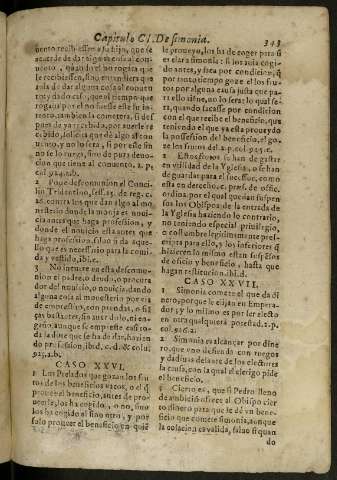 Capitulo CI. De simonia. 343
uento recibiessen a su hijo, que se
acuerde de dar alguna cosa al con-
uento, quando el no rogica que
le recibiessen, sino entendiera que
auia de dar alguna cosa al conuen
to, y
intento
nto, tambien la cometera, si des-
pues de ya recebido, por auerle re
cebido,
uento, y no lo sera, si por esse fin
no se lo
cion que tiene al conuento. 2. p.
col. 924. a.b.
2 Puede descomunion el Conci
lio Tridentino, sess. 25. de reg. c.
16. contra los que dan algo al mo
nesterio donde la monja es noui-
cia antes que haga profession, y
donde el nouicio esta antes que
haga profession, saluo si da aque-
llo que es necessario para la comi-
da y vestido, ibi. c.
3 No incurre en esta descomu-
nion el padre o deudo, o procura
dor del nouicio, o nouicia, dando
alguna cosa al monesterio por via
de emprestito, con prendas, o fia
ças bastantes, sin auer dolo, ni en-
gaño, aunque se empreste casi to-
da la dote que se ha de dar, hazien
do profession, ibid. c. d. & colu.
925. a. b.
CASO XXVI.
1 Los Prelados que gozan los fru
tos de los beneficios vacos, o el q̃
prouee el beneficio, antes de pro-
ueerle, los ha cogido, o no, sino
los ha cogido el año otro, y por
solo proueer el beneficio en quiẽ
le proueyo, los ha de coger para si
es clara simonia: si los auia cogi-
do antes, y saca por condicion, q̃
por tanto tiempo goze el los fru-
tos por alguna causa justa que pa-
ra ello aisne, no lo sera: lo qual se-
ra, quando sacasse por condicion
con el que recibe el beneficio, que
teniendo el que ya esta proueydo
la possession del beneficio, el go-
ze los frutos del. 2. p. col. 925. c.
2 Estos frutos se han de gastar
en vtilidad de la Yglesia, o se han
de guardar para el successor, como
esta en derecho, c. præs. de offic.
ordina. por el qual quedan suspen
sos los Obispos de la entrada de
la Yglesia haziendo lo contrario,
no teniendo especial priuilegio,
o costumbre legitimamente pres-
cripta para ello, y los inferiores q̃
hizieren lo mismo estan suspẽsos
de oficio y beneficio, hasta que
hagan restitucion, ibi. d.
CASO XXVII.
1 Simonia comete el que da di
nero, porque le elijan en Empera-
dor, y lo mismo es por ser electo
en otra qualquiera potestad. 2. p.
col. 926. a.
2 Simonia es alcançar por dine
ro, que vno desienda con ruegos
y dadiuas delante de los electores
la causa, con la qual el clerigo pide
el beneficio.
3 Cierto es, que si Pedro lleno
de ambicion ofrece al Obispo cier
to dinero para que le dè vn bene-
ficio que comete simonia, aunque
la colacion es valida, saluo si quan
do